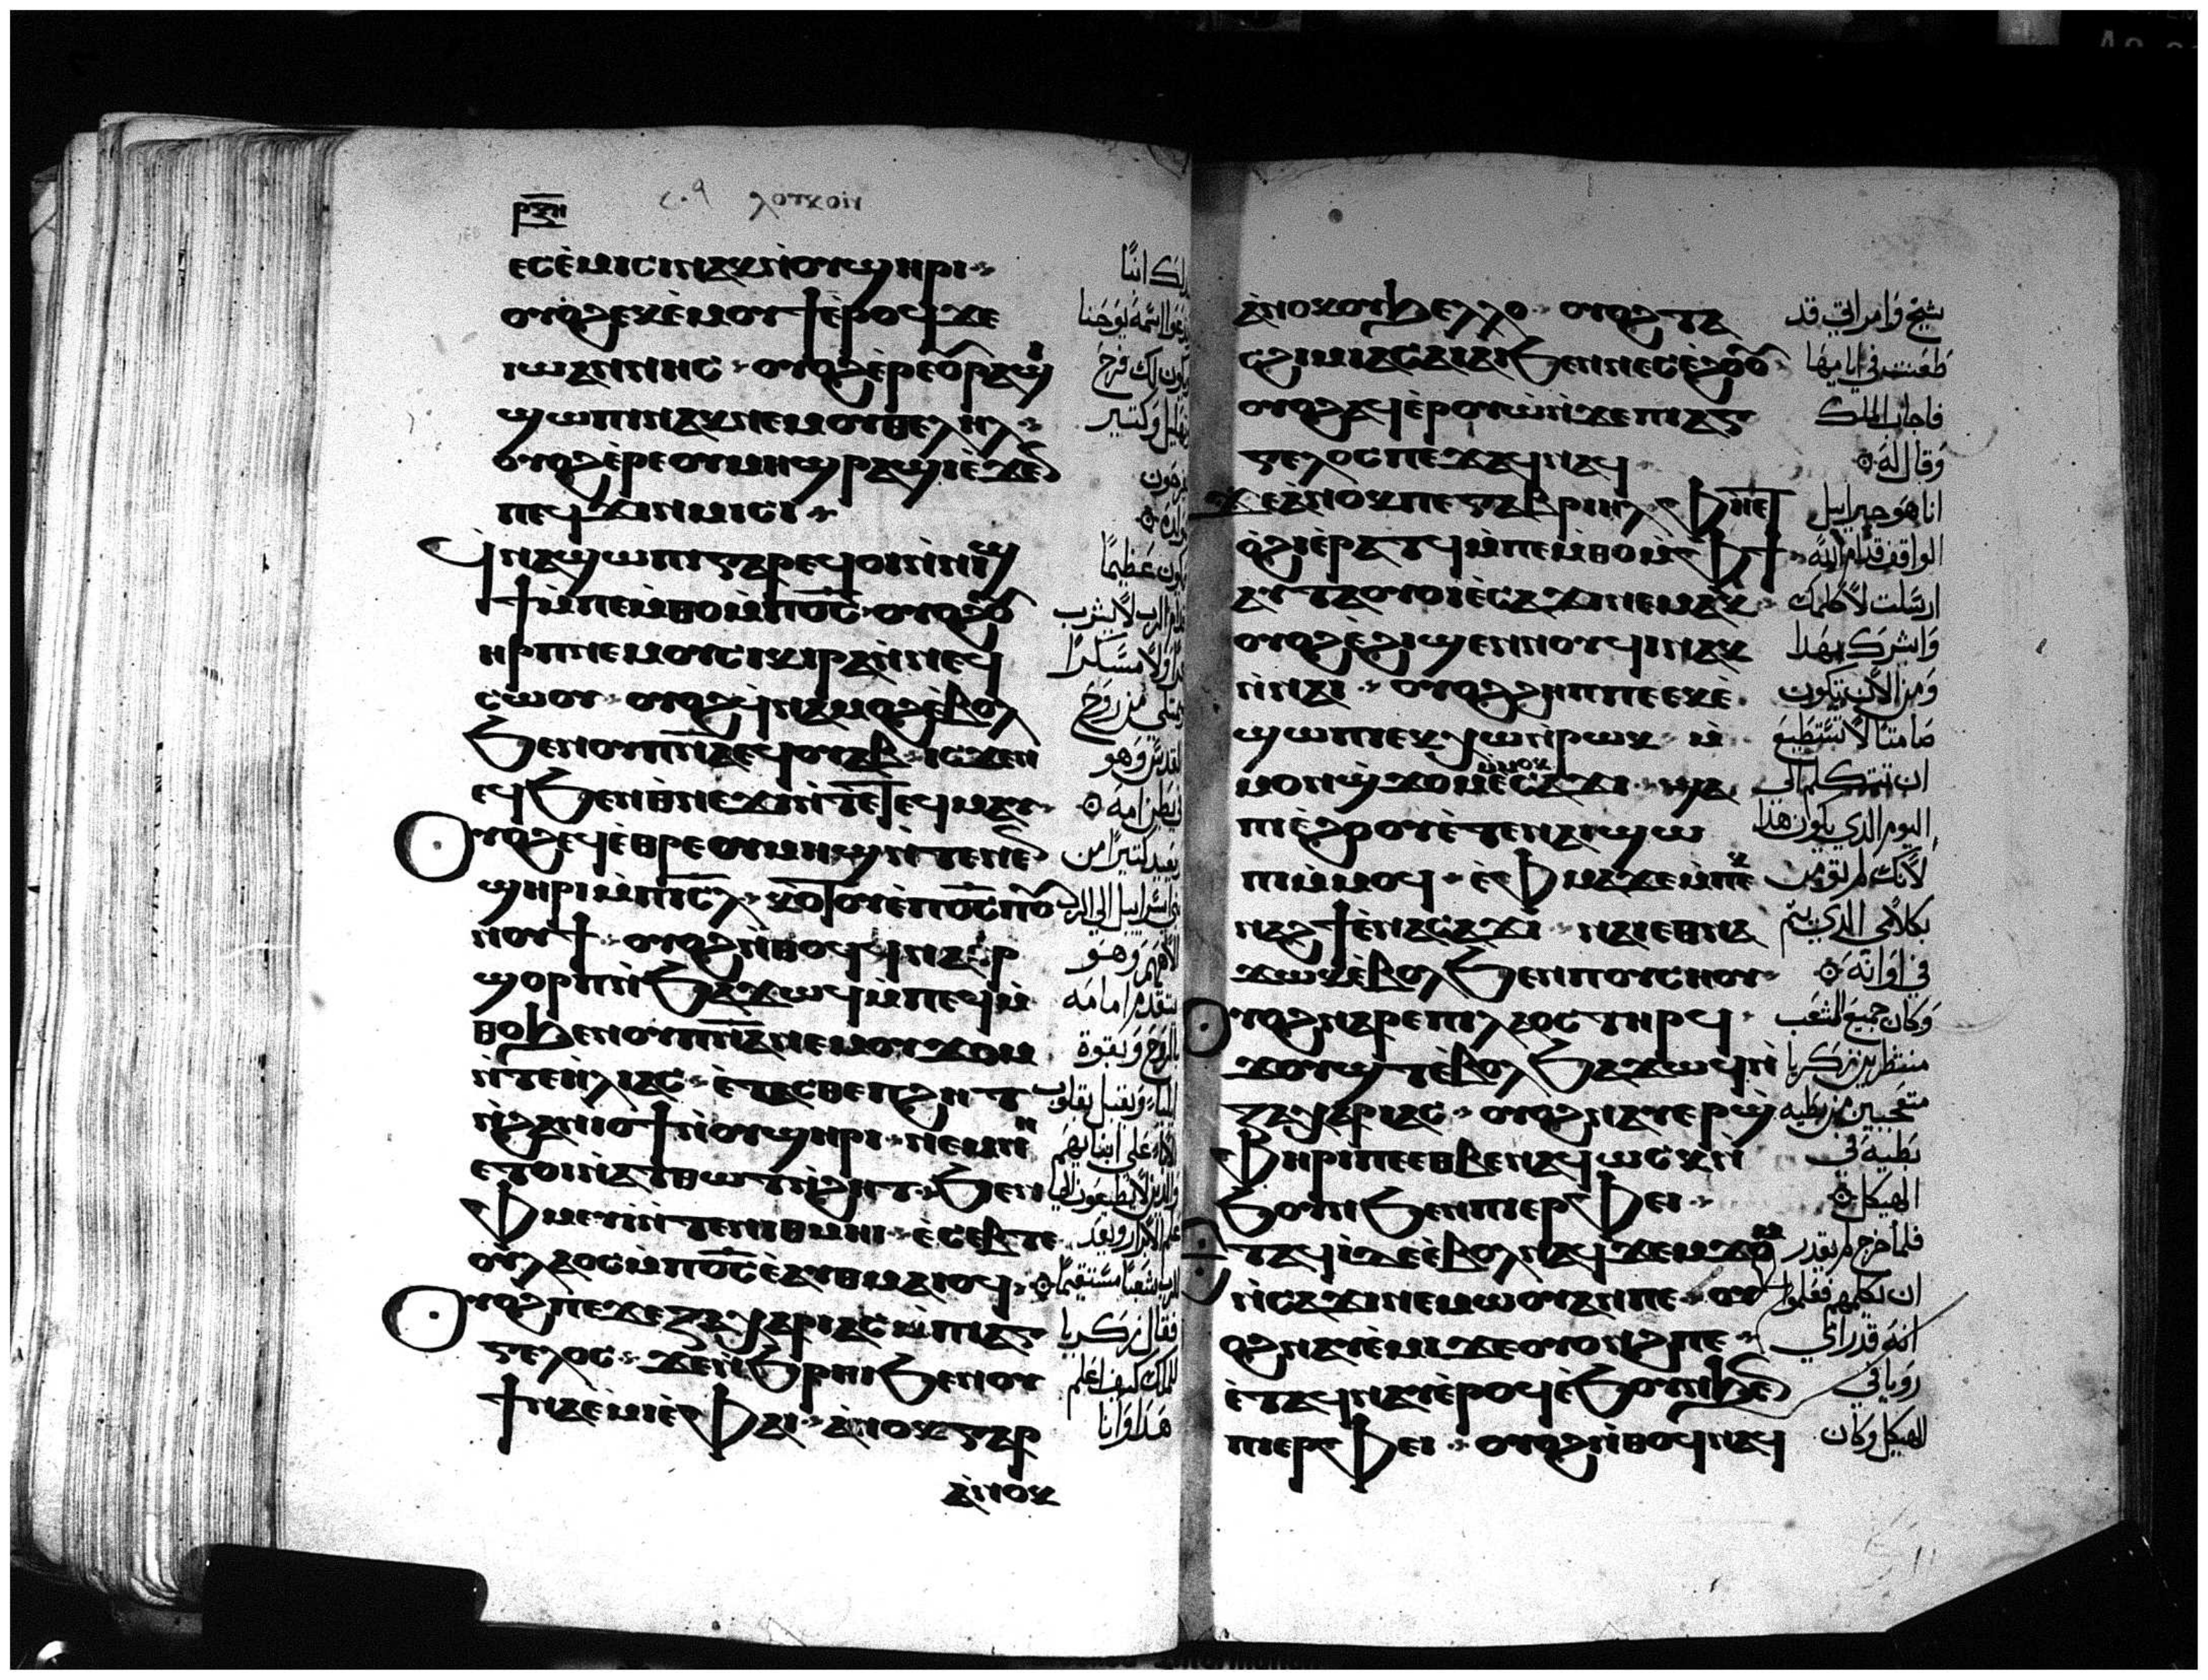 ⲣⲝⲏ
ⲉⲥⲉ̀ⲙⲓⲥⲓⲛⲁⲕⲛ̀ⲟⲩϣⲏⲣⲓ
ⲟⲩⲟϩⲉⲕⲉ̀ⲙⲟⲩϯⲉ̀ⲣⲟϥϫⲉ
ⲓⲱⲁⲛⲛⲏⲥ ⲟⲩⲟϩⲉ̀ⲣⲉⲟⲩⲣⲁϣⲓ
ϣⲱⲡⲓⲛⲁⲕⲛⲉⲙⲟⲩⲑⲉⲗⲏⲗ
ⲟⲩⲟϩⲉ̀ⲣⲉⲟⲩⲙⲏϣⲣⲁϣⲓⲉ̀ϫⲉⲛ
ⲡⲉϥϫⲓⲛⲙⲓⲥⲓ
ϥⲛⲁϣⲱⲡⲓⲅⲁⲣⲉϥⲟⲓⲛ̀ⲛⲓϣ
ϯⲙ̀ⲡⲉⲙ̀ⲑⲟⲙ̀ⲡⲟ̅ⲥ̅ ⲟⲩⲟϩⲟⲩ
ⲏⲣⲡⲛⲉⲙⲟⲩⲥⲓⲕⲓⲣⲁⲛ̀ⲛⲉϥ
ⲥⲱⲟⲩ ⲟⲩⲟϩϥ̀ⲛⲁⲙⲟϩⲉ̀ⲃⲟⲗ
ϧⲉⲛⲟⲩⲡ̅ⲛ̅ⲁ̅ⲉϥⲟⲩⲁⲃ ⲓⲥϫⲉⲛ
ⲉϥϧⲉⲛⲑ̀ⲛⲉϫⲓⲛ̀ⲧⲉⲧⲉϥⲙⲁⲩ
ⲟⲩⲟϩⲉϥⲉ̀ⲑⲣⲉⲟⲩⲙⲏϣⲛ̀ⲧⲉⲛⲉⲛ
ϣⲏⲣⲓⲙ̀ⲡⲓ̅ⲥ̅ⲗ̅ ⲕⲟⲧⲟⲩⲉ̀ⲡⲟ̅ⲥ̅ⲡⲟⲩ
ⲛⲟⲩϯ ⲟⲩⲟϩⲛ̀ⲑⲟϥϥⲛⲁⲉⲣ
ϣⲟⲣⲡⲛ̀ϧⲁϫⲱϥⲙ̀ⲡⲉϥⲙ̀
ⲑⲟϧⲉⲛⲟⲩⲡ̅ⲛ̅ⲁ̅ⲛⲉⲙⲟⲩϫⲟⲙ
ⲛ̀ⲧⲉⲏⲗⲓⲁⲥ ⲉ̀ⲧⲁⲥⲑⲉⲡϩⲏⲧ
ⲛ̀ϩⲁⲛⲓⲟϯⲛ̀ⲟⲩϣⲏⲣⲓ ⲛⲉⲙⲛⲏ
ⲉⲧⲟⲓⲛ̀ⲁⲧⲑⲱⲧⲛ̀ϩⲏⲧ ϧⲉⲛ
ⲫⲙⲉⲩⲓⲛ̀ⲧⲉⲛⲓⲑⲙⲏⲓ ⲉ̀ⲥⲉⲃⲧⲉ
ⲟⲩⲗⲁⲟⲥⲙ̀ⲡⲟ̅ⲥ̅ⲉⲁⲩⲑⲙⲁⲓⲟϥ
ⲟⲩⲟϩⲡⲉϫⲉⲍⲁⲭⲁⲣⲓⲁⲥⲙ̀ⲡⲓⲁⲅ
ⲅⲉⲗⲟⲥ ϫⲉⲛ̀ϩⲣⲏⲓϧⲉⲛⲟⲩ
ϯⲛⲁⲉ̀ⲙⲓⲉ̀ⲫⲁⲓ ⲁⲛⲟⲕⲅⲁⲣ
ⲁⲛⲟⲕ
لك ابنًا
اسمه يوحنا
يكون لك فرح
وتهليل وكتير
يفرحون
يكون عظيمًا
الرب لا يشرب
ولا مسكرًا
من روح
القدس وهو
بطن امه
كتيرًا من
اسراييل الي الرب
الاههم وهو
يتقدم امامه
بالروح وبقوة
ايليا ويقبل بقلوب
الابا علي ابنايهم
الابرار ويعد
للرب شعبًا مستقيمًا
فقال زكريا
للملك كيف اعلم
هدا وانا
ⲁ̀ⲛⲟⲕⲟⲩϧⲉⲗⲗⲟ ⲟⲩⲟϩⲧⲁ
ⲥϩⲓⲙⲓⲁⲥⲁⲓⲁⲓϧⲉⲛⲛⲉⲥⲉ̀ϩⲟⲟⲩ
ⲟⲩⲟϩⲁϥⲉ̀ⲣⲟⲩⲱ̀ⲛ̀ϫⲉⲡⲓⲁⲅ
ⲅⲉⲗⲟⲥⲡⲉϫⲁϥⲛⲁϥ
ϫⲉⲁⲛⲟⲕⲡⲉⲅⲁⲃⲣⲓⲏⲗ ⲫⲏⲉⲧ
ⲟ̀ϩⲓⲉ̀ⲣⲁⲧϥⲙ̀ⲡⲉⲙ̀ⲑⲟⲙ̀ⲫϯ
ⲁⲩⲧⲁⲟⲩⲟⲓⲉ̀ⲥⲁϫⲓⲛⲉⲙⲁⲕ
ⲟⲩⲟϩⲉ̀ϩⲓϣⲉⲛⲛⲟⲩϥⲓⲛⲁⲕ
ⲛ̀ⲛⲁⲓ ⲟⲩⲟϩϩⲏⲡⲡⲉⲉⲕⲉ̀
ϣⲱⲡⲓⲉⲕⲭⲱⲛ̀ⲣⲱⲕ ⲙ̀
ⲙⲟⲛϣϫⲟⲙⲙ̀ⲙⲟⲕⲉ̀ⲥⲁϫⲓ ϣⲁ
ⲡⲓⲉ̀ϩⲟⲟⲩⲉ̀ⲧⲉⲛⲁⲓϣⲱ
ⲡⲓⲙ̀ⲙⲟϥ ⲉ̀ⲫⲙⲁϫⲉⲙ̀ⲡⲉⲕ
ⲛⲁϩϯⲉ̀ⲛⲁⲥⲁϫⲓ ⲛⲁⲓⲉⲑⲛⲁ
ϫⲱⲕⲉ̀ⲃⲟⲗϧⲉⲛⲡⲟⲩⲥⲏⲟⲩ
ⲟⲩⲟϩⲛⲁⲣⲉⲡⲓⲗⲁⲟⲥⲧⲏⲣϥ
ϫⲟⲩϣⲧⲉ̀ⲃⲟⲗϧⲁϫⲱϥⲛ̀
ⲍⲁⲭⲁⲣⲓⲁⲥ ⲟⲩⲟϩⲛⲁⲩⲉⲣϣ̀
ⲫⲏⲣⲓⲡⲉⲉⲑⲃⲉⲛⲁϥⲱⲥⲕⲛ̀
ϧⲟⲩⲛϧⲉⲛⲡⲓⲉⲣⲫⲉⲓ
ⲉⲧⲁϥⲓ̀ⲇⲉⲉ̀ⲃⲟⲗⲛⲁϥϫⲉⲙϫⲟⲙ
ⲛ̀ⲥⲁϫⲓⲛⲉⲙⲱⲟⲩⲁⲛⲡⲉ ⲟⲩ
ⲟϩⲛⲁⲩⲉ̀ⲙⲓϫⲉⲟⲩⲟⲛϩⲡⲉ
ⲉ̀ⲧⲁϥⲛⲁⲩⲉ̀ⲣⲟϥⲉ̀ϧⲟⲩⲛϧⲉⲛ
ⲡⲓⲉⲣⲫⲉⲓ ⲟⲩⲟϩⲛ̀ⲑⲟϥⲛⲁϥ
شيخ وامراتي قد
طعنت في ايامها
فاجاب الملك
وقال له
انا هو جبراييل
الواقف قدام الله
ارسلت لاكلمك
وابشرك بهدا
ومن الان تكون
صامتًا لا تستطيع
ان تتكلم الي
اليوم الدي يكون هذا
لانك لم تومن
بكلامي الدي يتم
في اوانه
وكان جميع الشعب
منتظرين زكريا
متعجبين من بطيه
بطيه في
الهيكل
فلما خرج لم يقدر
ان يكلمهم فعلموا
انه قد راي
رويا في
الهيكل وكان